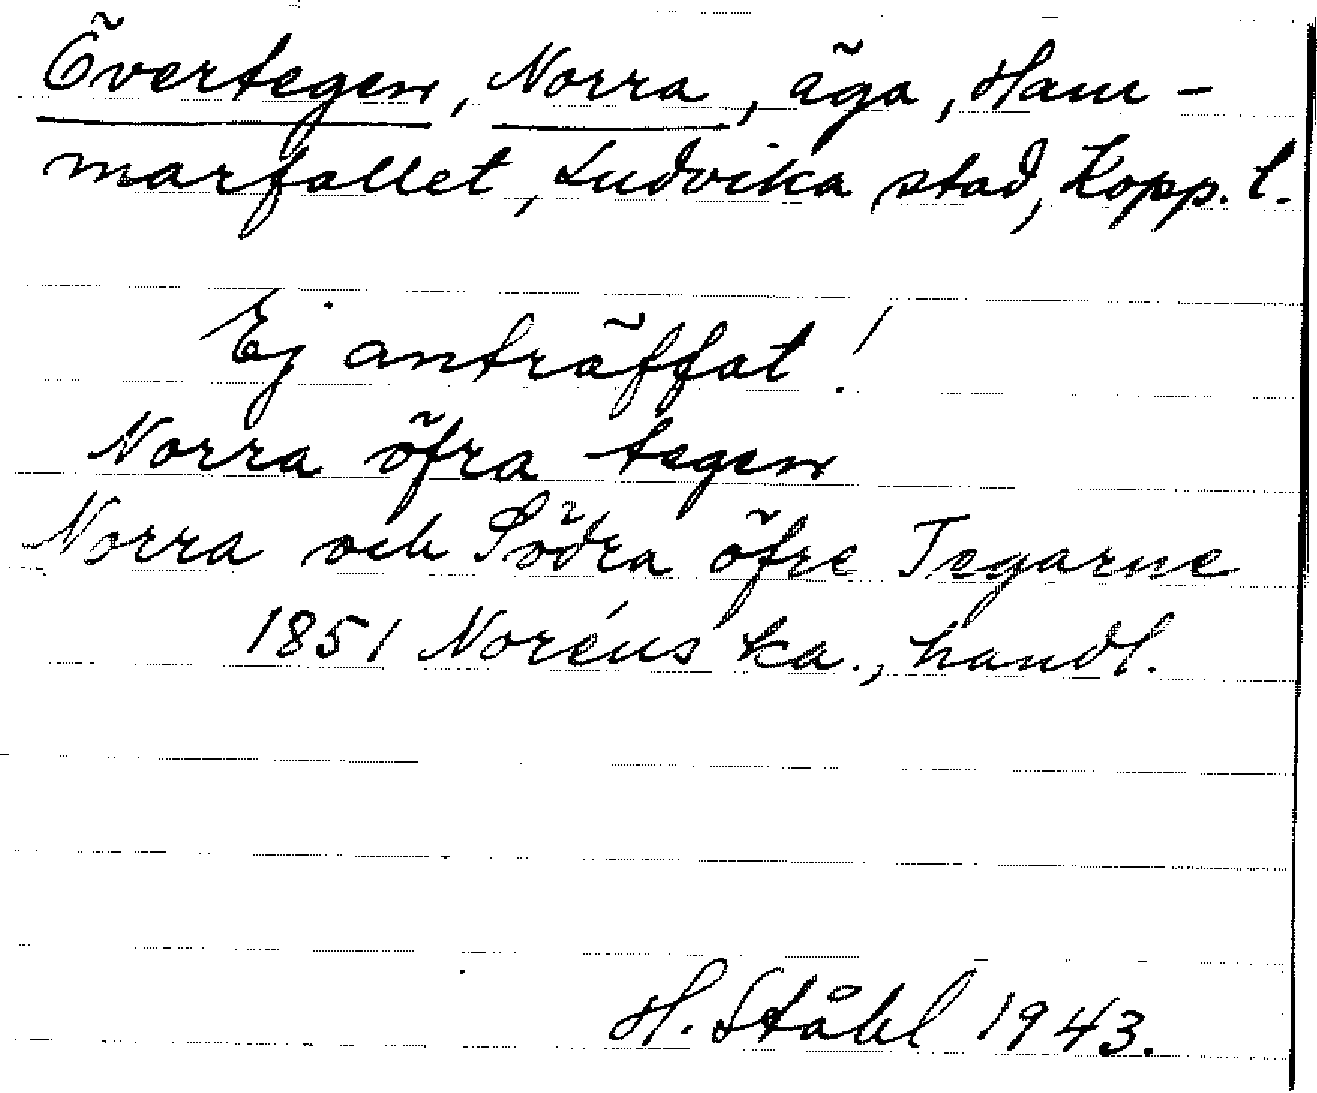 Övertegen, Norra, äga, Ham-
marfallet, Ludvika stad, Kopp. l.
Ej anträffat!
Norra öfra tegen
Norra och Södra öfre Tegarne
1851 Noréns ka., handl.
H. Ståhl 1943.